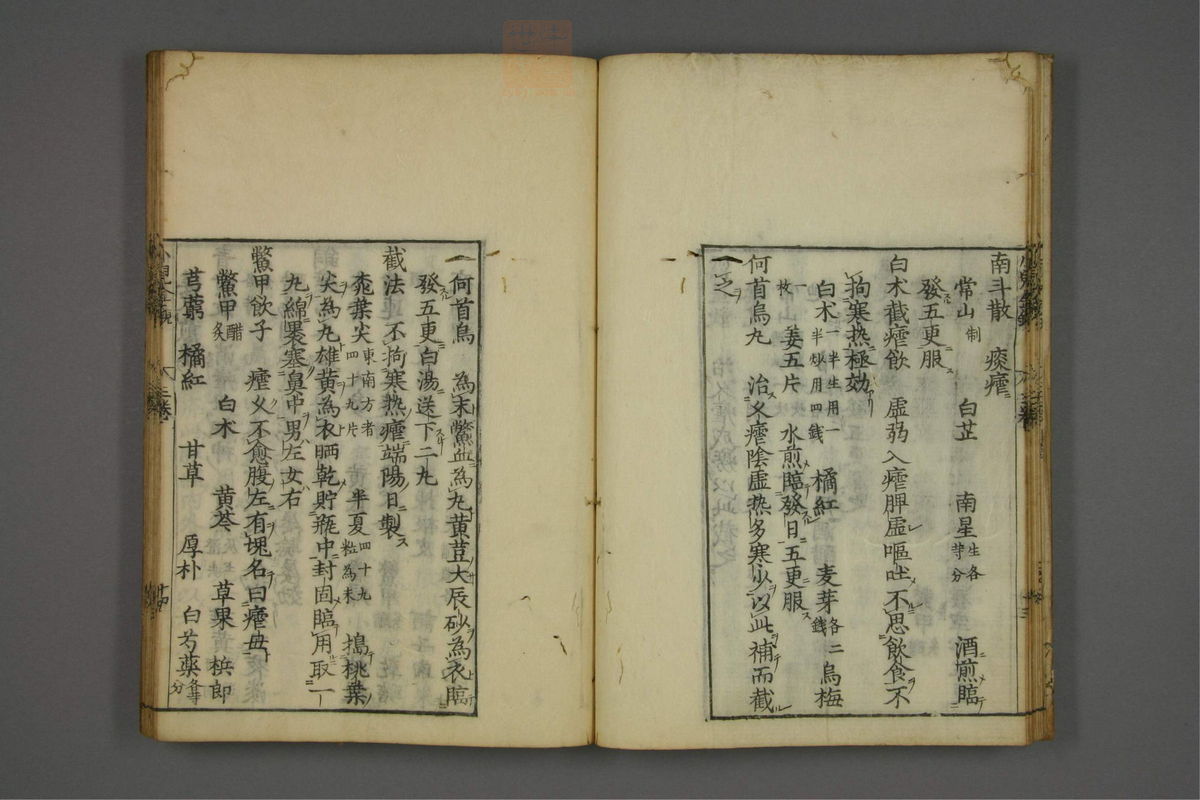 南斗散 痰瘧
常山制 白芷 南星生各等分 酒煎臨
發五更服
白朮截瘧飲 虛弱入瘧脾虛嘔吐不思飲食不
拘寒热極効
白朮一半生用一半炒用四錢 橘紅 麦芽各二錢 烏梅
一枚 姜五片 水煎臨發日五更服
何首烏丸 治久瘧陰虛热多寒少以此補而截
之
一何首烏 為末鱉血為丸黄荳大辰砂為衣臨
發五更白湯送下二丸
截法 不拘寒热瘧端陽日製
桃葉尖東南方者四十九片 半夏四十九粒為末 搗桃葉
尖為丸雄黄為衣晒乾貯瓶中封固臨用取一
丸綿裹塞鼻中男左女右
鱉甲飲子 瘧久不愈腹左有塊名曰瘧母
鱉甲醋炙 白朮 黄芩 草果 梹郎
芎藭 橘紅 甘草 厚朴 白芍薬各等分